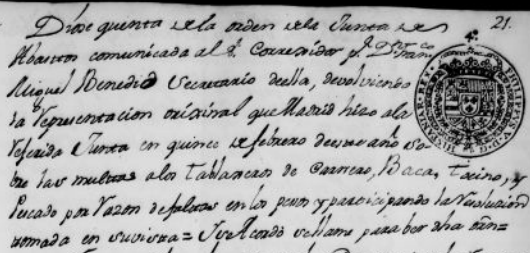 21.
Diose quenta de la orden de la Junta de
Abastos comunicada al Sr. Corregidor pr. Dn. Franco
Miguel Benedid Secretario de ella, devolviendo
la Representacion orixinal que Madrid hizo ala
referida Junta en quince de febrero de este año so
bre las multas alos tablaxeros de Carnero, Baca, tozino, y
Pescado por razon de faltas en los pesos y participando la resoluzion
tomada en su vista = Y se Acordo se llame para ber dha orn =